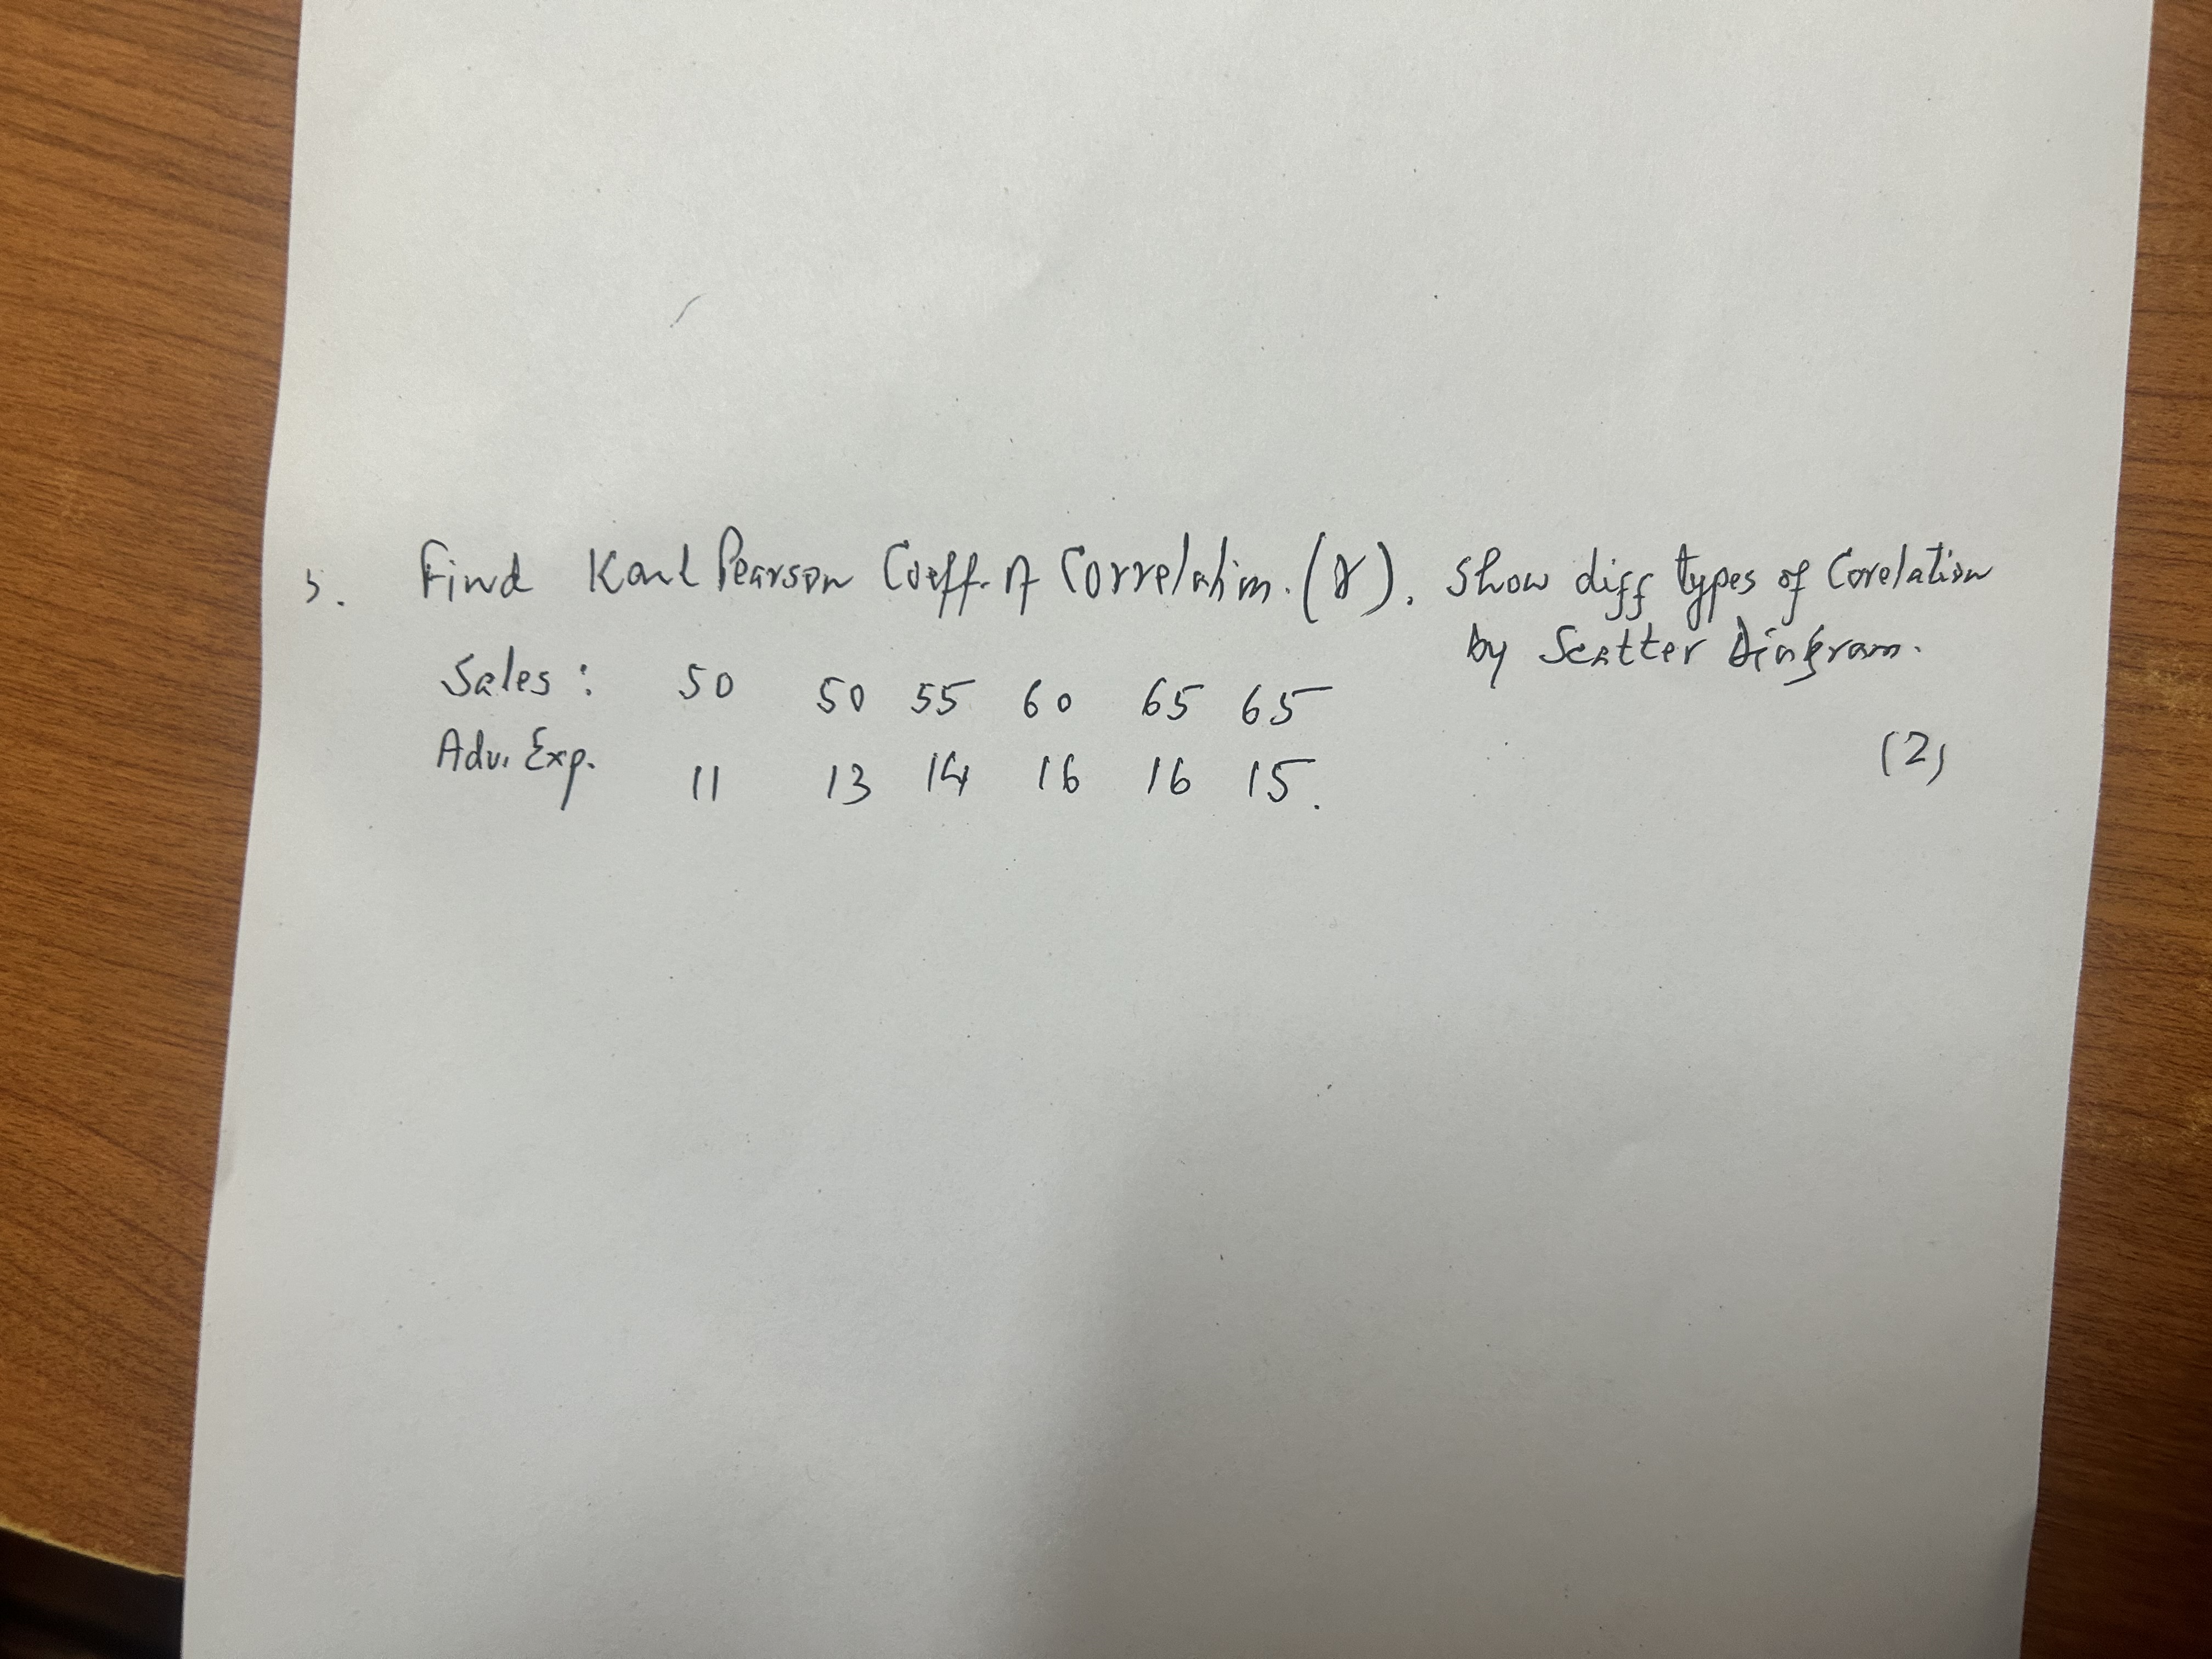 3. Find Karl Pearson Coeff. of Correlation. (r). Show diff types of Corelation
by Scatter Diagram.
Sales : 50 50 55 60 65 65
Adv. Exp. 11 13 14 16 16 15.
(2)